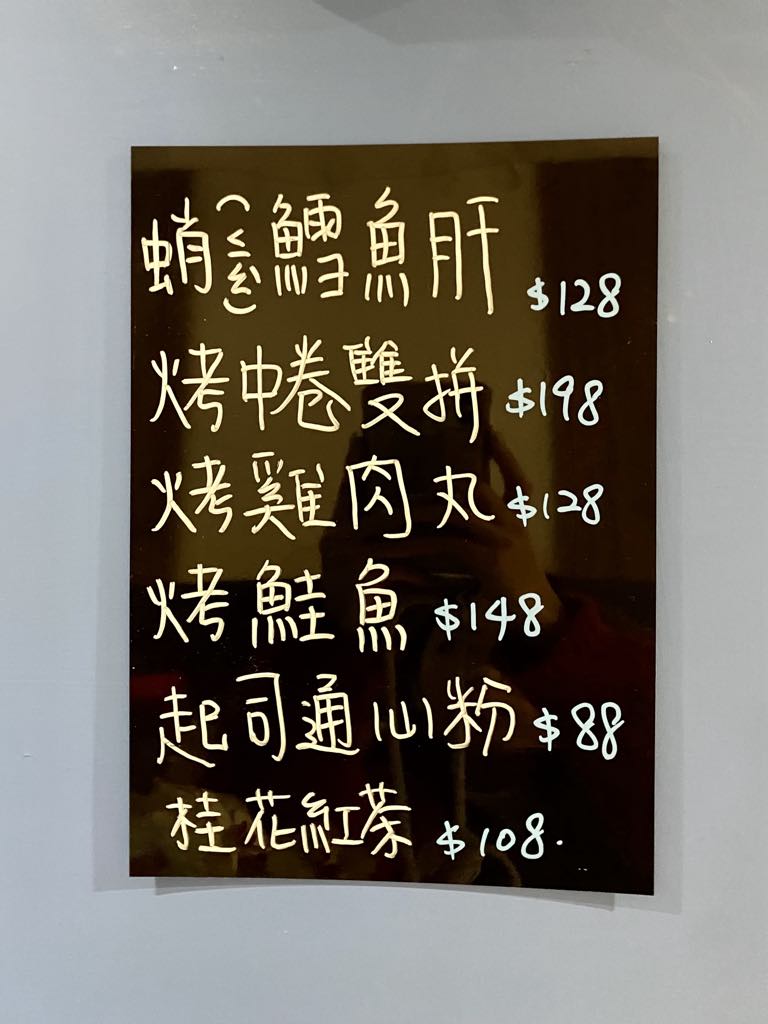 蛸鱈魚肝 $128
烤中卷雙拼 $198
烤雞肉丸 $128
烤鮭魚 $148
起司通心粉 $88
桂花紅茶 $108.